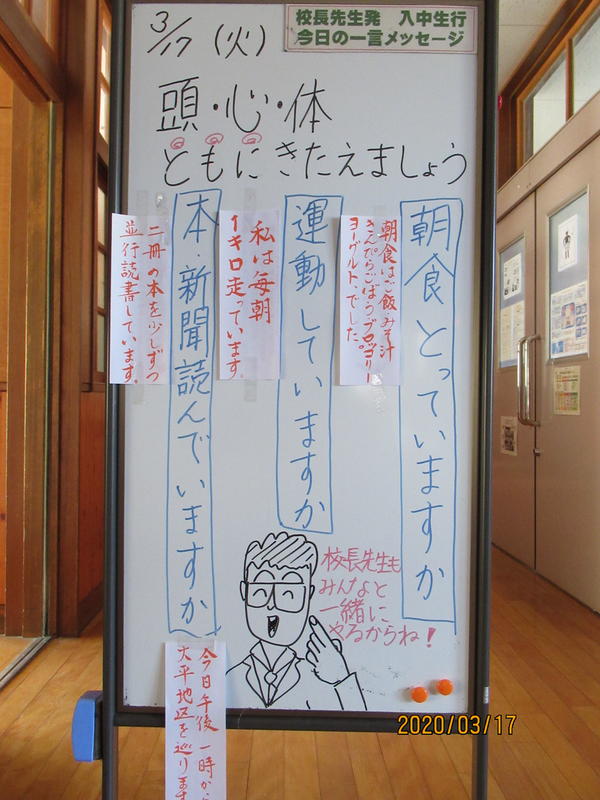 校長先生発 入中生行
今日の一言メッセージ
3/17(火)
頭・心・体
ともにきたえましょう
朝食とっていますか
朝食はご飯・みそ汁
きんぴらごぼう・ブロッコリー
ヨーグルト、でした。
運動していますか
私は毎朝
1キロ走っています。
本・新聞読んでいますか
二冊の本を少しずつ
並行読書しています。
校長先生も
みんなと
一緒に
やるからね!
今日午後一時から
大平地区を巡ります
2020/03/17